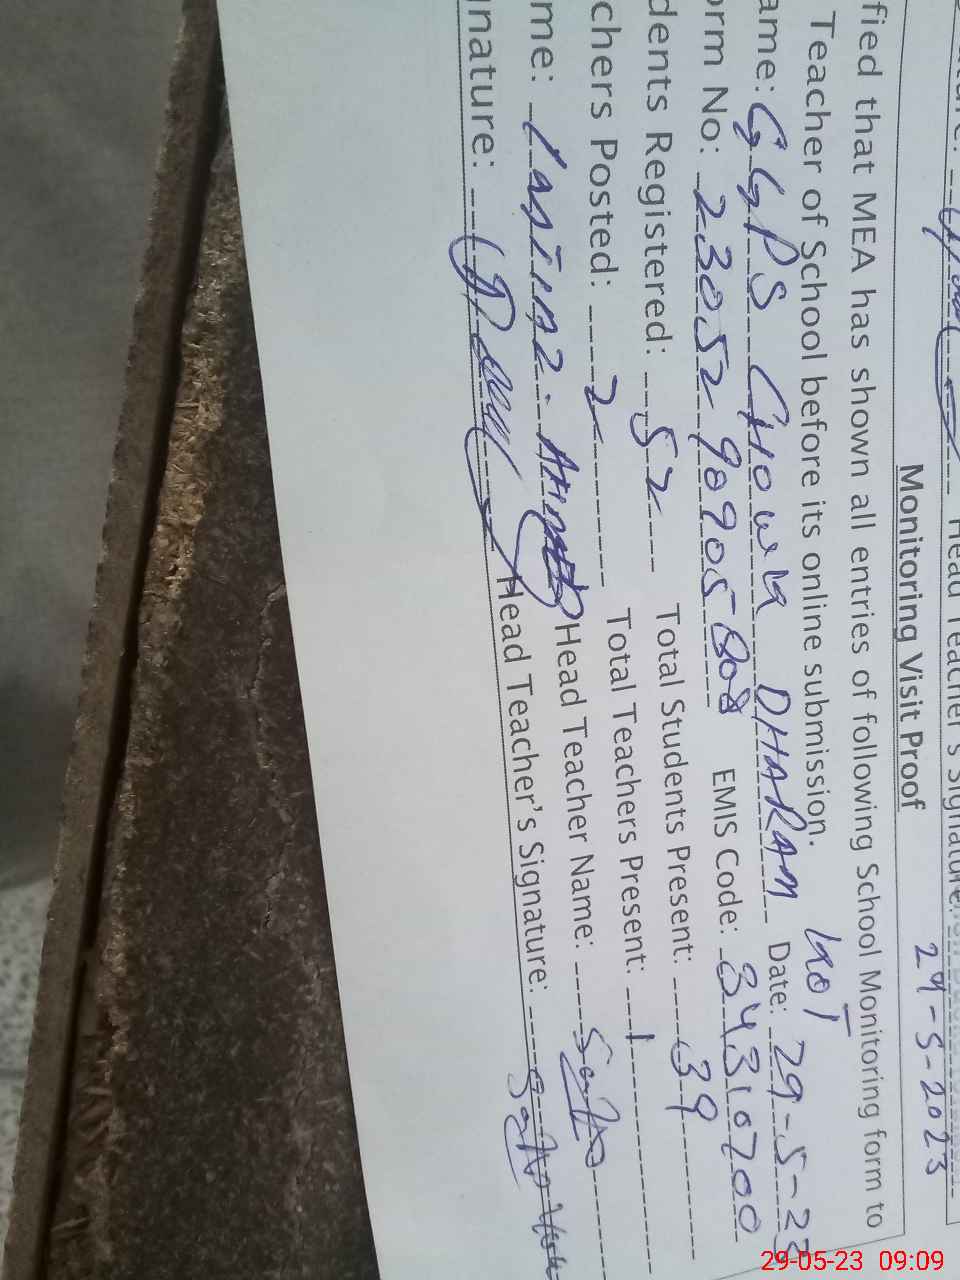 Head Teacher's Signature:
Monitoring Visit Proof 29-5-2023
fied that MEA has shown all entries of following School Monitoring form to
Teacher of School before its online submission.
ame: GGPS CHOWK DHARAM KOT Date: 29-5-23
orm No: 2305290905808 EMIS Code: 34310700
dents Registered: 52 Total Students Present: 39
chers Posted: 2 Total Teachers Present: 1
me: Head Teacher Name:
nature: Head Teacher's Signature:
29-05-23 09:09